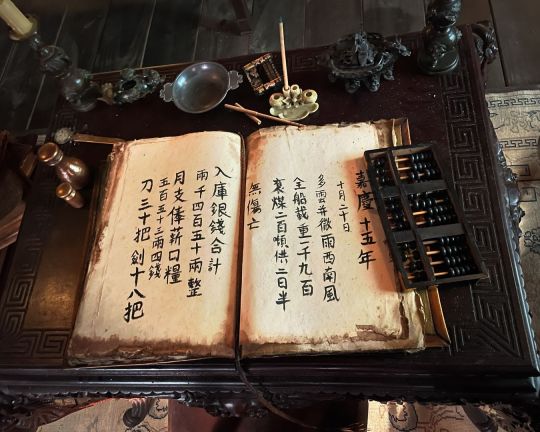 嘉慶十五年
十月二十日
多雲并微雨西南風
全船載重一千九百
裏煤二百噸供二日半
無傷亡
入庫銀錢合計
兩千四百五十兩整
月支俸薪口糧
五百五十三兩四錢
刀三十把劍十八把